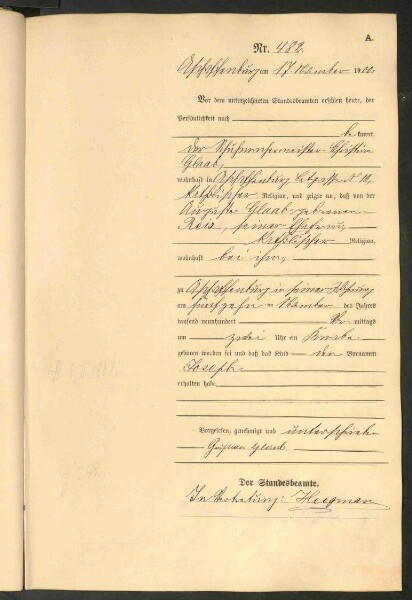 A.
Nr. 482.
Aschaffenburg am 17 November 1900.
Vor dem unterzeichneten Standesbeamten erschien heute, der
Persönlichkeit nach
bekannt,
der Schuhmachermeister Christian
Glaab,
wohnhaft in Aschaffenburg N 10,
katholischer Religion, und zeigte an, daß von der
Auguste Glaab geborenen
Reis, seiner Ehefrau,
katholischer Religion,
wohnhaft bei ihm,
zu Aschaffenburg in seiner Wohnung
am fünfzehn ten November des Jahres
tausend neunhundert Vormittags
um zwei Uhr ein Knabe
geboren worden sei und daß das Kind den Vornamen
Joseph
erhalten habe
Vorgelesen, genehmigt und unterschrieben
Christian Glaab.
Der Standesbeamte.
In Vertretung: Heegman